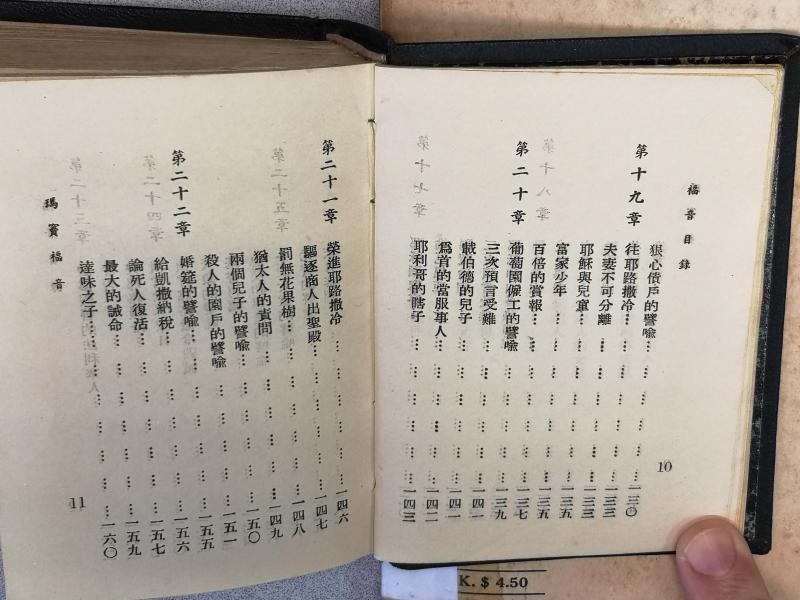 福音目錄
狠心債戶的譬喻…………一三〇
第十九章
往耶路撒冷…………一三三
夫妻不可分離…………一三三
耶穌與兒童…………一三三
富家少年…………一三五
百倍的賞報…………一三五
第二十章
葡萄園僱工的譬喻…………一三七
三次預言受難…………一三九
載伯德的兒子…………一四一
爲首的當服事人…………一四二
耶利哥的瞎子…………一四三
10
第二十一章
榮進耶路撒冷…………一四六
驅逐商人出聖殿…………一四七
罰無花果樹…………一四八
猶太人的責問…………一四九
兩個兒子的譬喻…………一五〇
殺人的園戶的譬喻…………一五一
第二十二章
婚筵的譬喻…………一五五
給凱撒納稅…………一五六
論死人復活…………一五七
最大的誡命…………一五九
達味之子…………一六〇
瑪竇福音
11
K. $ 4.50